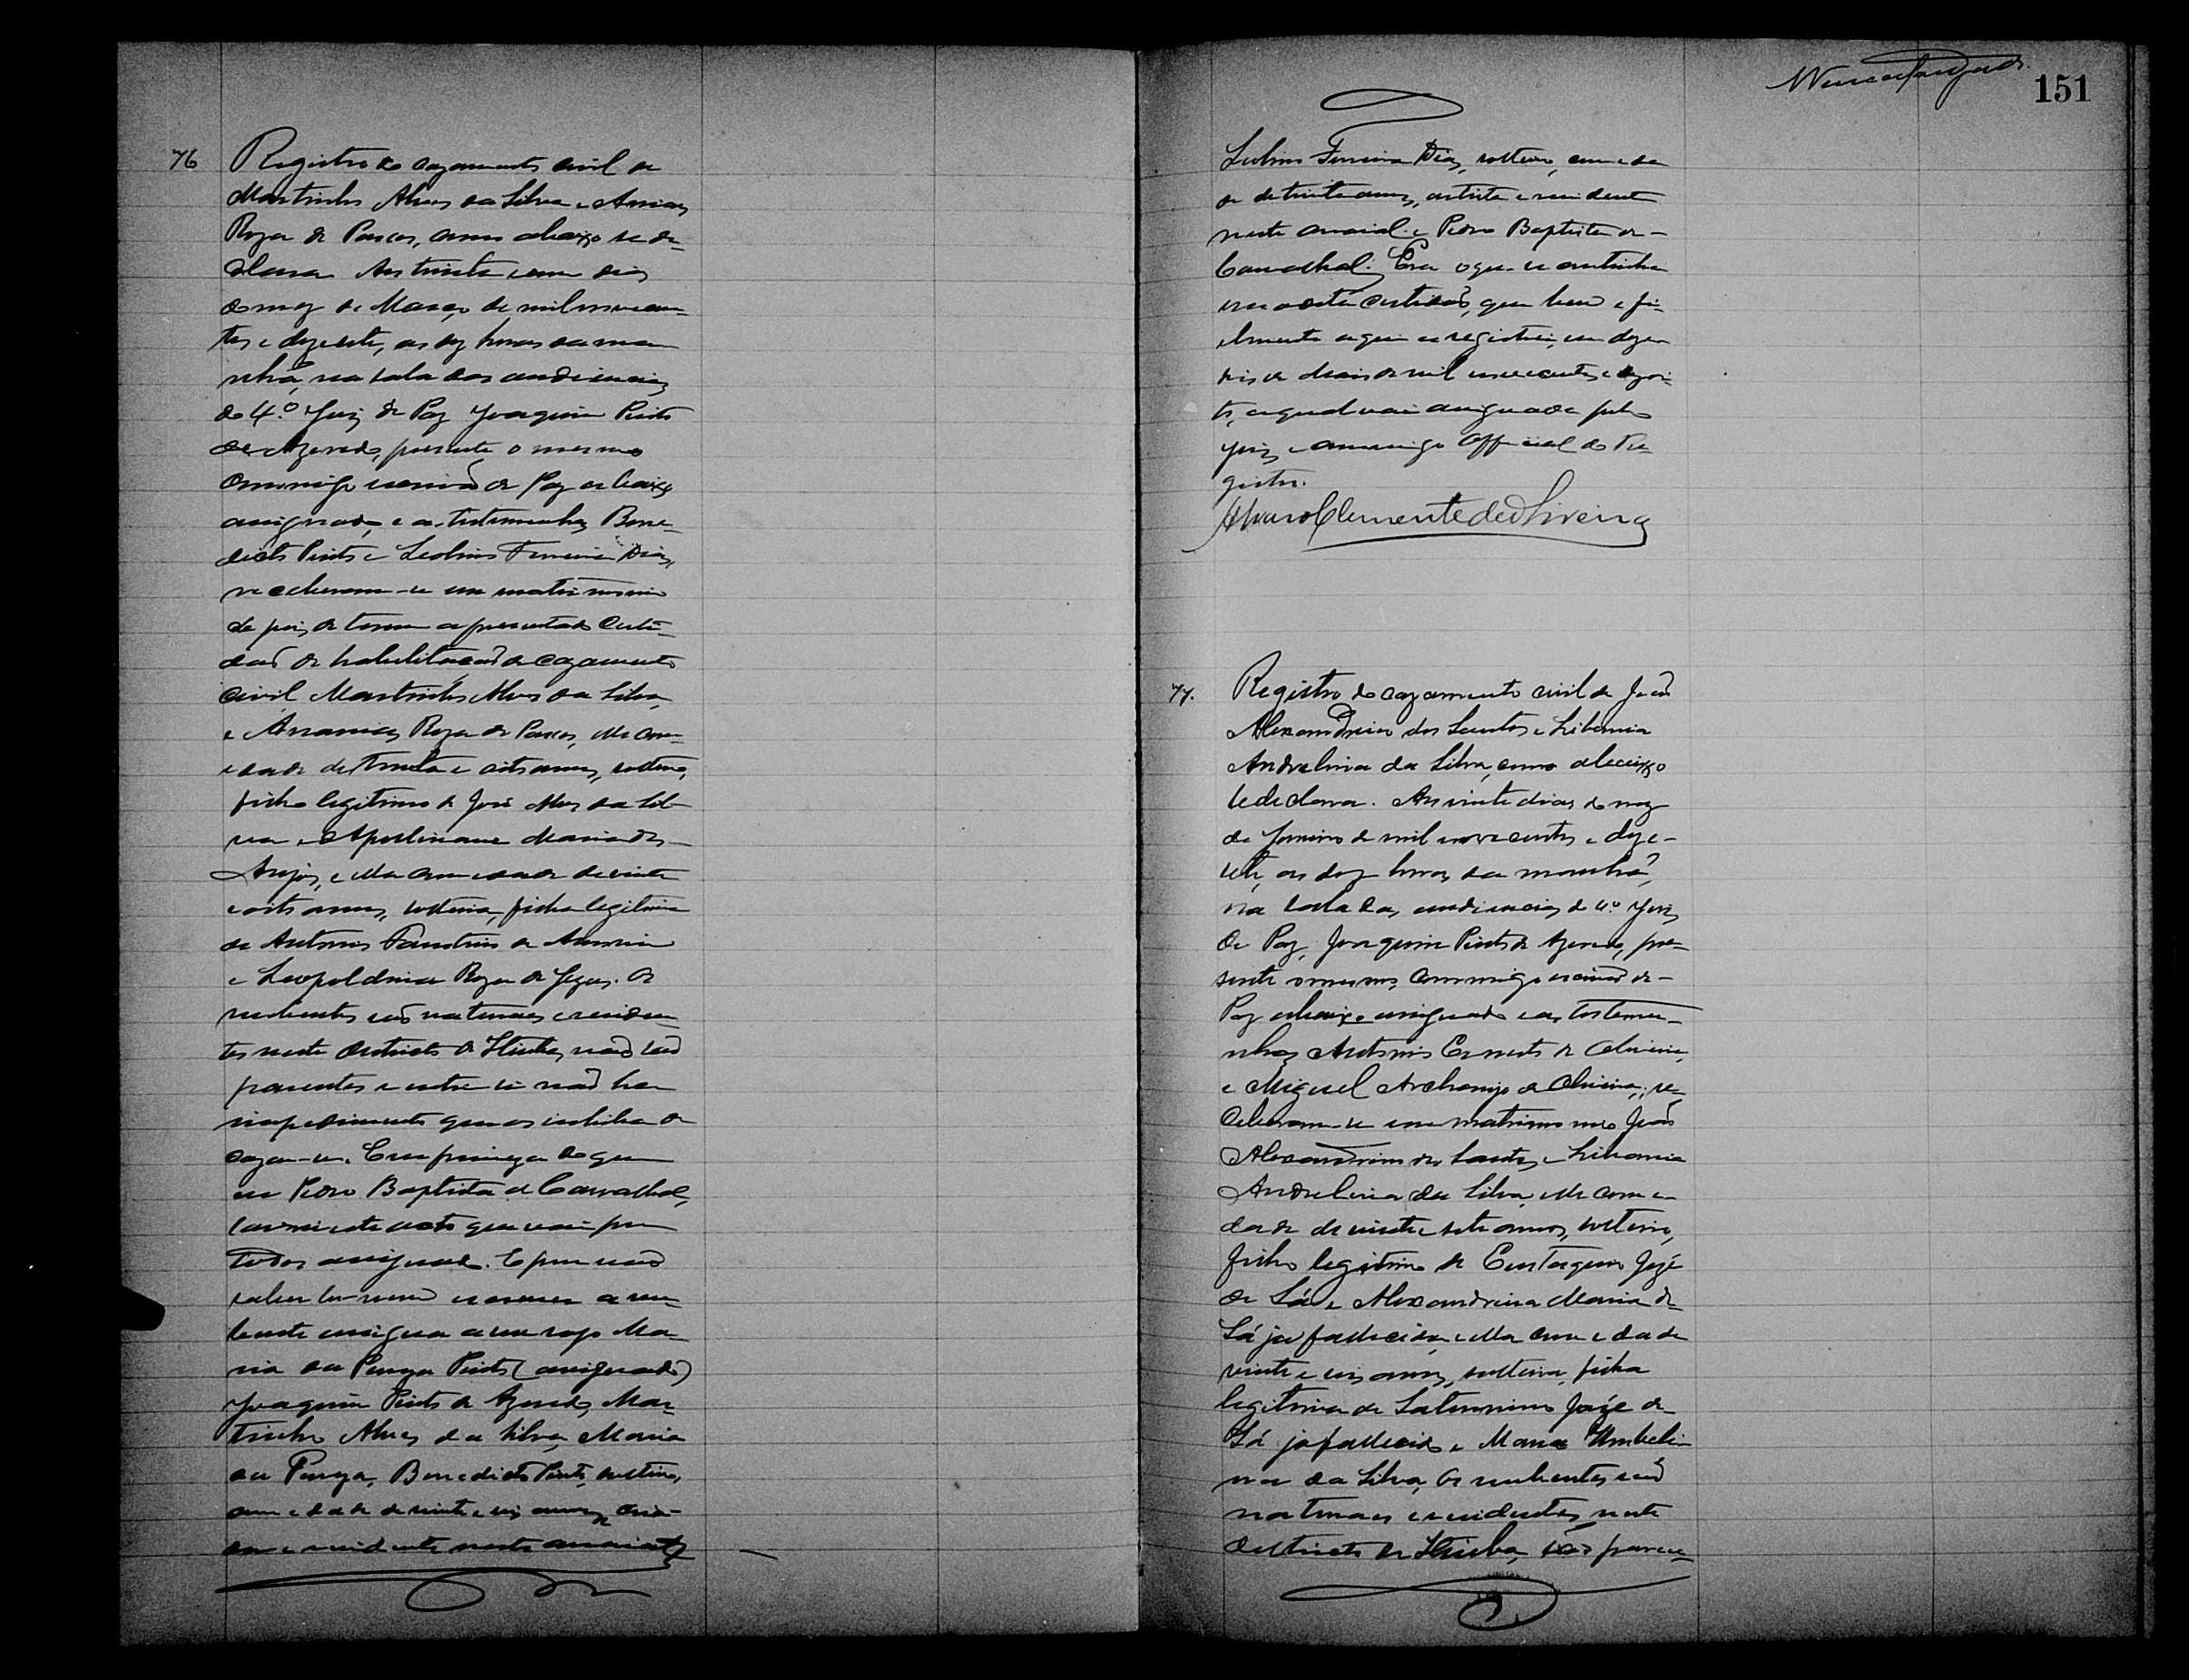 151
76
Registro do cazamento civil de
Martinho Alves da Silva e Ananias
Roza de Pascoa, como abaixo se de-
clara. Aos trinta e um dias
do mez de Março de mil novecen-
tos e dezesete, as dez horas da ma-
nhã, na sala das audiencias
do 4.º Juiz de Paz Joaquim Pinto
de Azeredo, presente o mesmo
commigo escrivão de Paz abaixo
assignado, e as testemunhas Bene-
dicto Pinto e Leolino Ferreira Dias,
receberam-se em matrimonio
depois de terem apresentado certi-
dão de habilitação de cazamento
civil Martinho Alves da Silva,
e Ananias Roza de Pascoa, elle com
edade de trinta e oito annos, solteiro,
filho legitimo de José Alves da Sil-
va e Apolinaria Maria dos
Anjos, e ella com edade de vinte
e oito annos, solteira, filha legitima
de Antonio Faustino de
e Leopoldina Roza de Jezus. Os
nubentes são naturaes e residen-
tes neste districto de não são
parentes e entre si não ha
impedimento que os inhiba de
cazar-se. Em firmeza do que
eu Pedro Baptista de Carvalhal,
lavrei este acto que vai por
todos assignado. E por não
saber ler nem escrever a nu-
bente assigna a seu rogo Ma-
ria da Pinto (assignado)
Joaquim Pinto de Azeredo, Mar-
tinho Alves da Silva, Maria
da Benedicto Pinto, solteiro,
com edade de vinte e seis annos,
e residente neste arraial
Leolino Ferreira Dias, solteiro, com eda-
de de trinta annos, artista e residente
neste arraial e Pedro Baptista de
Carvalhal. Era o que se continha
em a dita certidão, que bem e fi-
elmente aqui a registrei, em
de Maio de mil novecentos e dezoi-
to, a qual vai assignada pelo
Juiz e commigo Official do Re-
gistro.
Alvaro Clemente de Oliveira
77.
Registro do cazamento civil de João
Alexandrino dos Santos e Libania
Andrelina da Silva, como abaixo
se declara. Aos vinte dias do mez
de Janeiro de mil novecentos e deze-
sete, as dez horas da manhã,
na sala das audiencias do 4.º Juiz
de Paz, Joaquim Pinto de Azeredo, pre-
sente o mesmo, commigo escrivão de
Paz abaixo assignado e as testemu-
nhas Antonio Ernesto de Oliveira,
e Miguel Archanjo de Oliveira, re-
ceberam-se em matrimonio João
Alexandrino dos Santos e Libania
Andrelina da Silva, elle com e-
dade de vinte e sete annos, solteiro,
filho legitimo de Eustaquio José
de Sá e Alexandrina Maria de
Sá já fallecida, e ella com edade
vinte e seis annos, solteira, filha
legitima de Saturnino José de
Sá já fallecido e Maria Umbeli-
na da Silva, Os nubentes são
naturaes e residentes neste
districto de são paren-